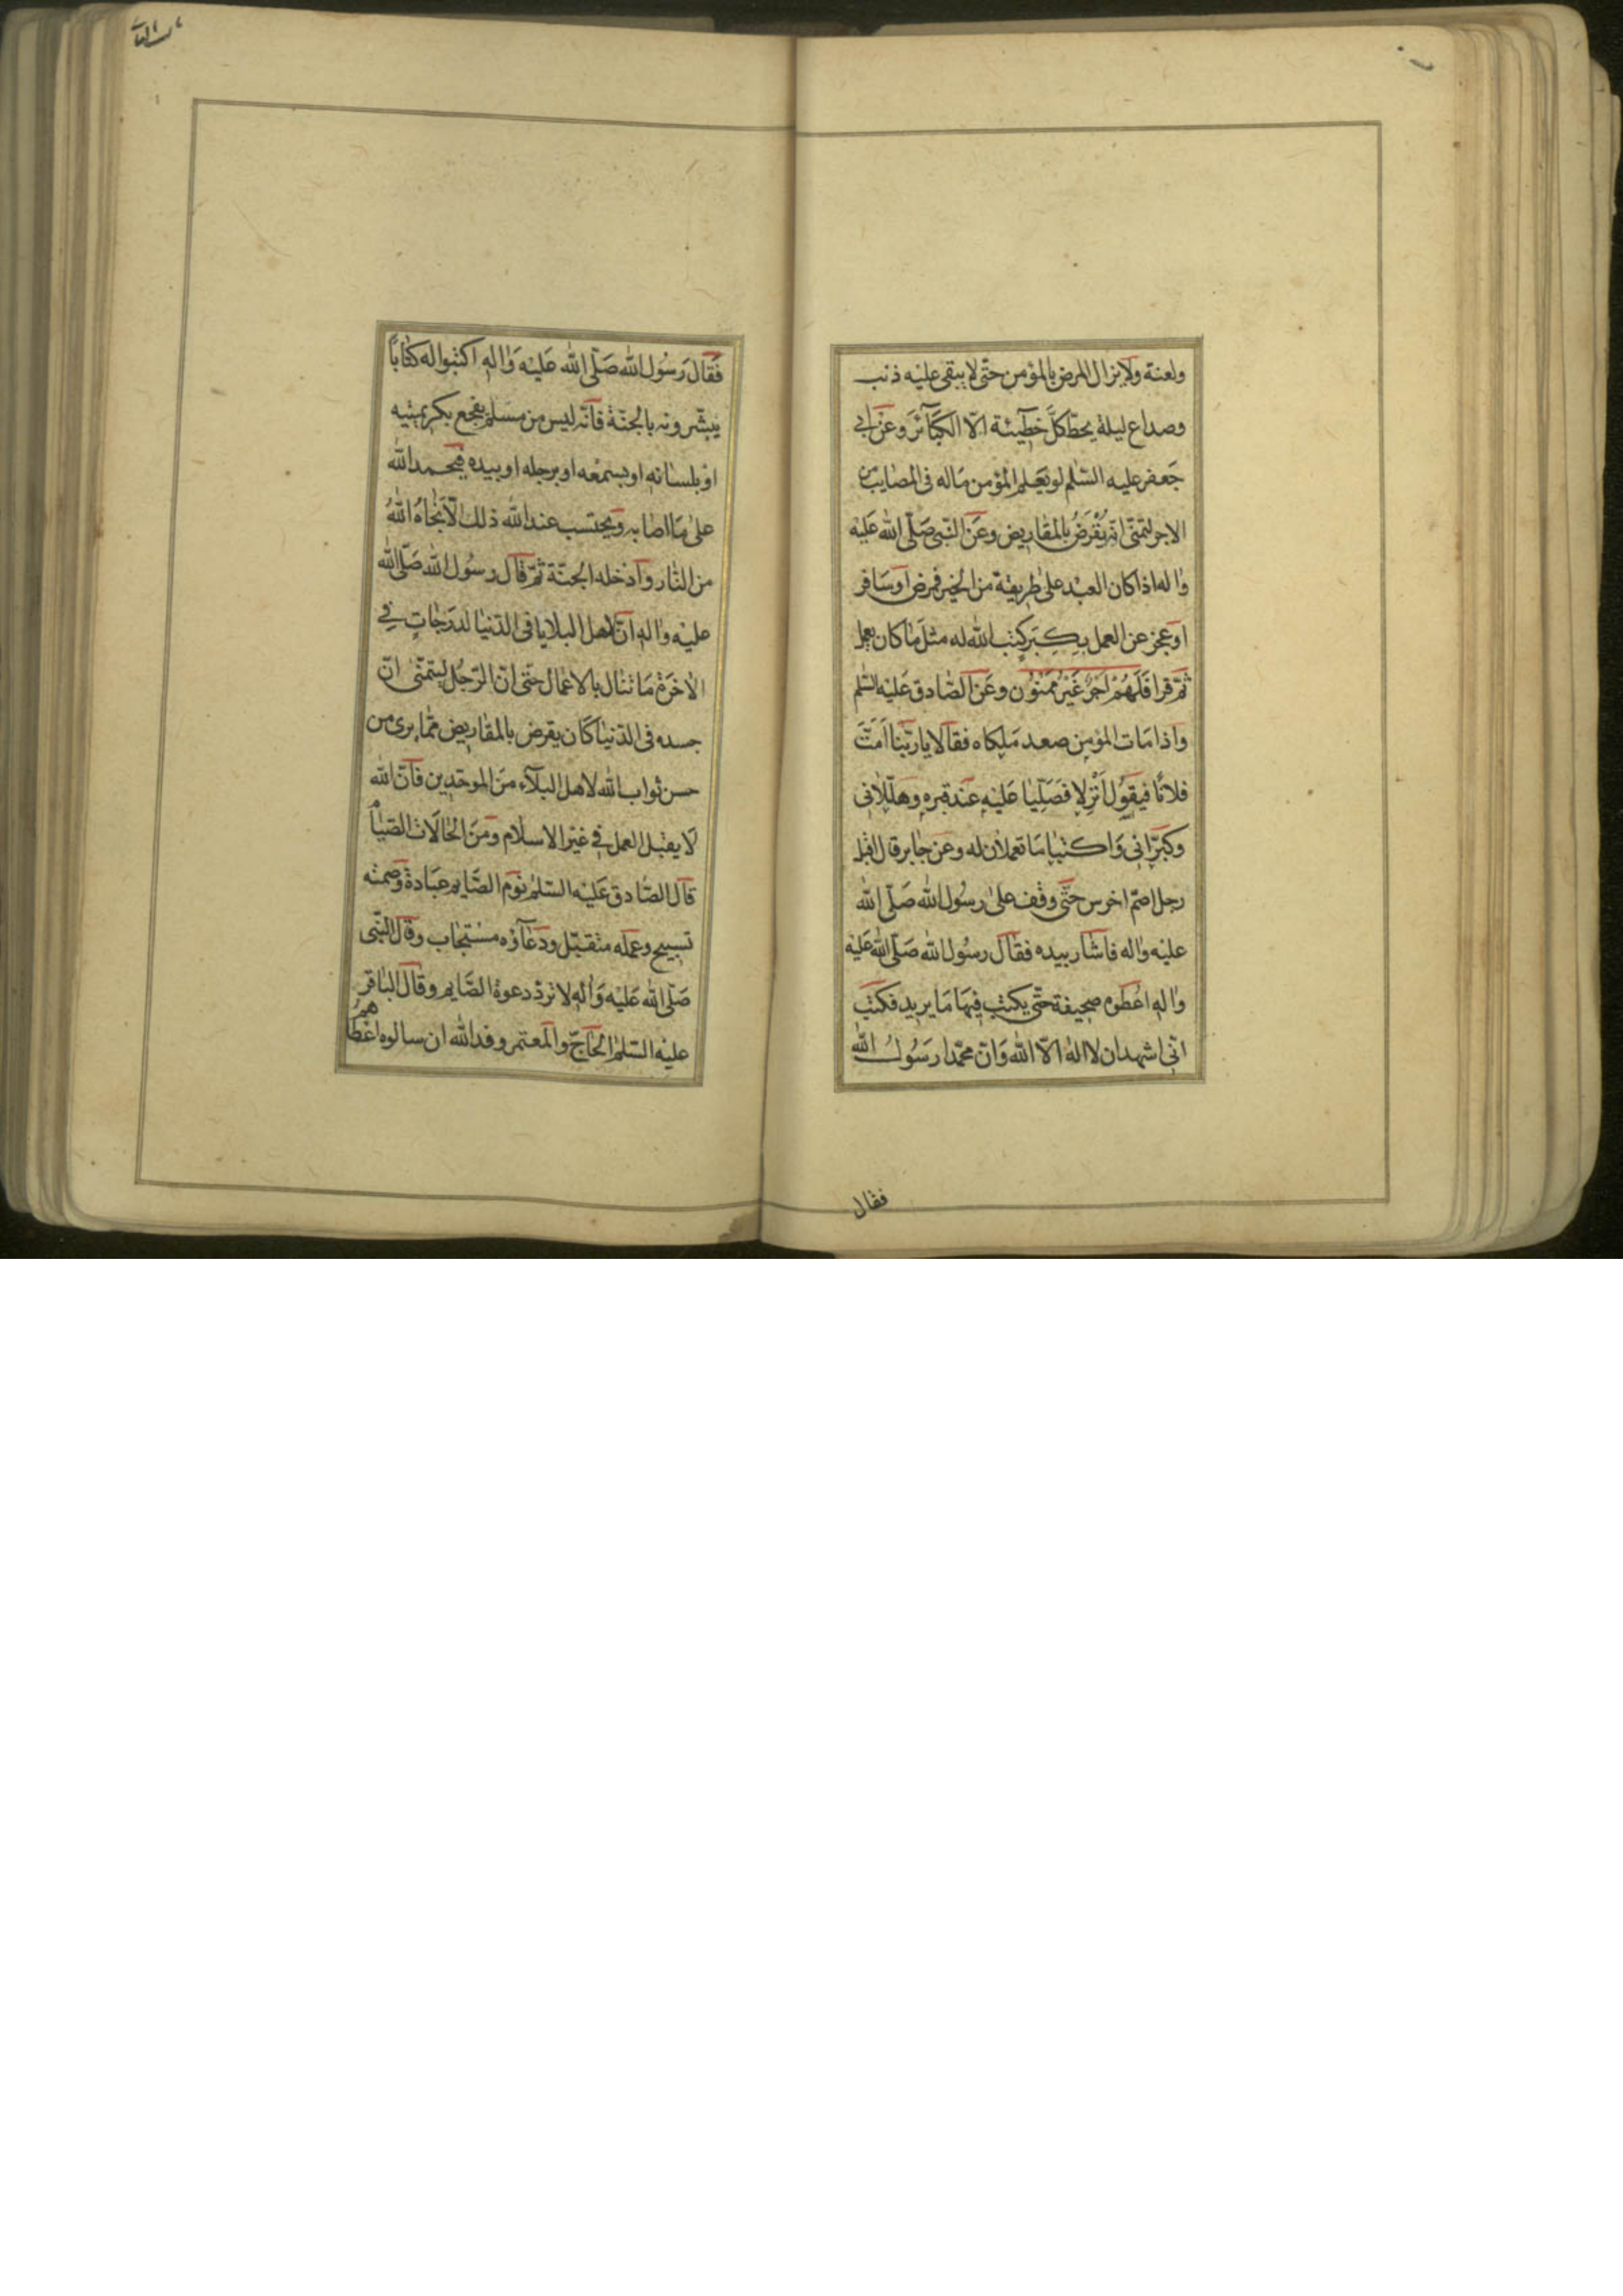 ولعنة ولا يزال المرض بالمؤمن حتّى لا يبقى عليه ذنب
وصداع ليلة يحطّ كلّ خطيئة الّا الكبآئر وعن ابى
جعفر عليه السّلم لو يعلم المؤمن ماله فى المصايب من
الاجر لتمنّى انّه يُقرَضُ بالمقاريض وعن النّبى صلّى الله عليه
واله اذا كان العبد على طريقة من الخير فمرض او سافر
او عجز عن العمل بكِبَر كتب الله له مثل ما كان يعمل
ثمّ قرا فَلَهُمْ اَجْرٌ غَيْرُ مَمْنُوْن وعن الصّادق عليه السّلم
واذا مات المؤمن صعد ملكاه فقالا يا ربّنا اَمَتَّ
فلانًا فيقول اَنزِلا فَصَلِّيا عليه عند قبره وهلّلانى
وكبّرانى واكتبا ما تعملان له وعن جابر قال اقبل
رجل اصمّ اخرس حتّى وقف على رسول الله صلّى الله
عليه واله فاشار بيده فقال رسول الله صلّى الله عليه
واله اعطوه صحيفة حتّى يكتب فيها ما يريد فكتب
انّى اشهد ان لا اله الّا الله وانّ محمّدا رسول الله
فقال
فقال رسول الله صلّى الله عليه واله اكتبوا له كتابًا
يبشّرونه بالجنّة فانّه ليس من مسلم يفجع بكريمتيه
او بلسانه او بسمعه او برجله او بيده فيحمد الله
على ما اصابه ويحتسب عند الله ذلك الّا نجّاه اللهُ
من النّار وادخله الجنّة ثمّ قال رسول الله صلّى الله
عليه واله انّ لاهل البلايا فى الدّنيا لدرجاتٍ في
الاخرة ما تنال بالاعمال حتّى انّ الرّجل ليتمنّى انّ
جسده فى الدّنيا كان يقرض بالمقاريض ممّا يرى من
حسن ثواب الله لاهل البلآء من الموحّدين فانّ الله
لا يقبل العمل في غير الاسلام ومن الحالات الصّيام
قال الصّادق عليه السّلم نوم الصّايم عبادة وصمته
تسبيح وعمله متقبّل ودعآؤه مستجاب وقال النّبى
صلّى الله عليه واله لا تردّ دعوة الصّايم وقال الباقر
عليه السّلم الحاجّ والمعتمر وفد الله ان سالوه اعطاهم